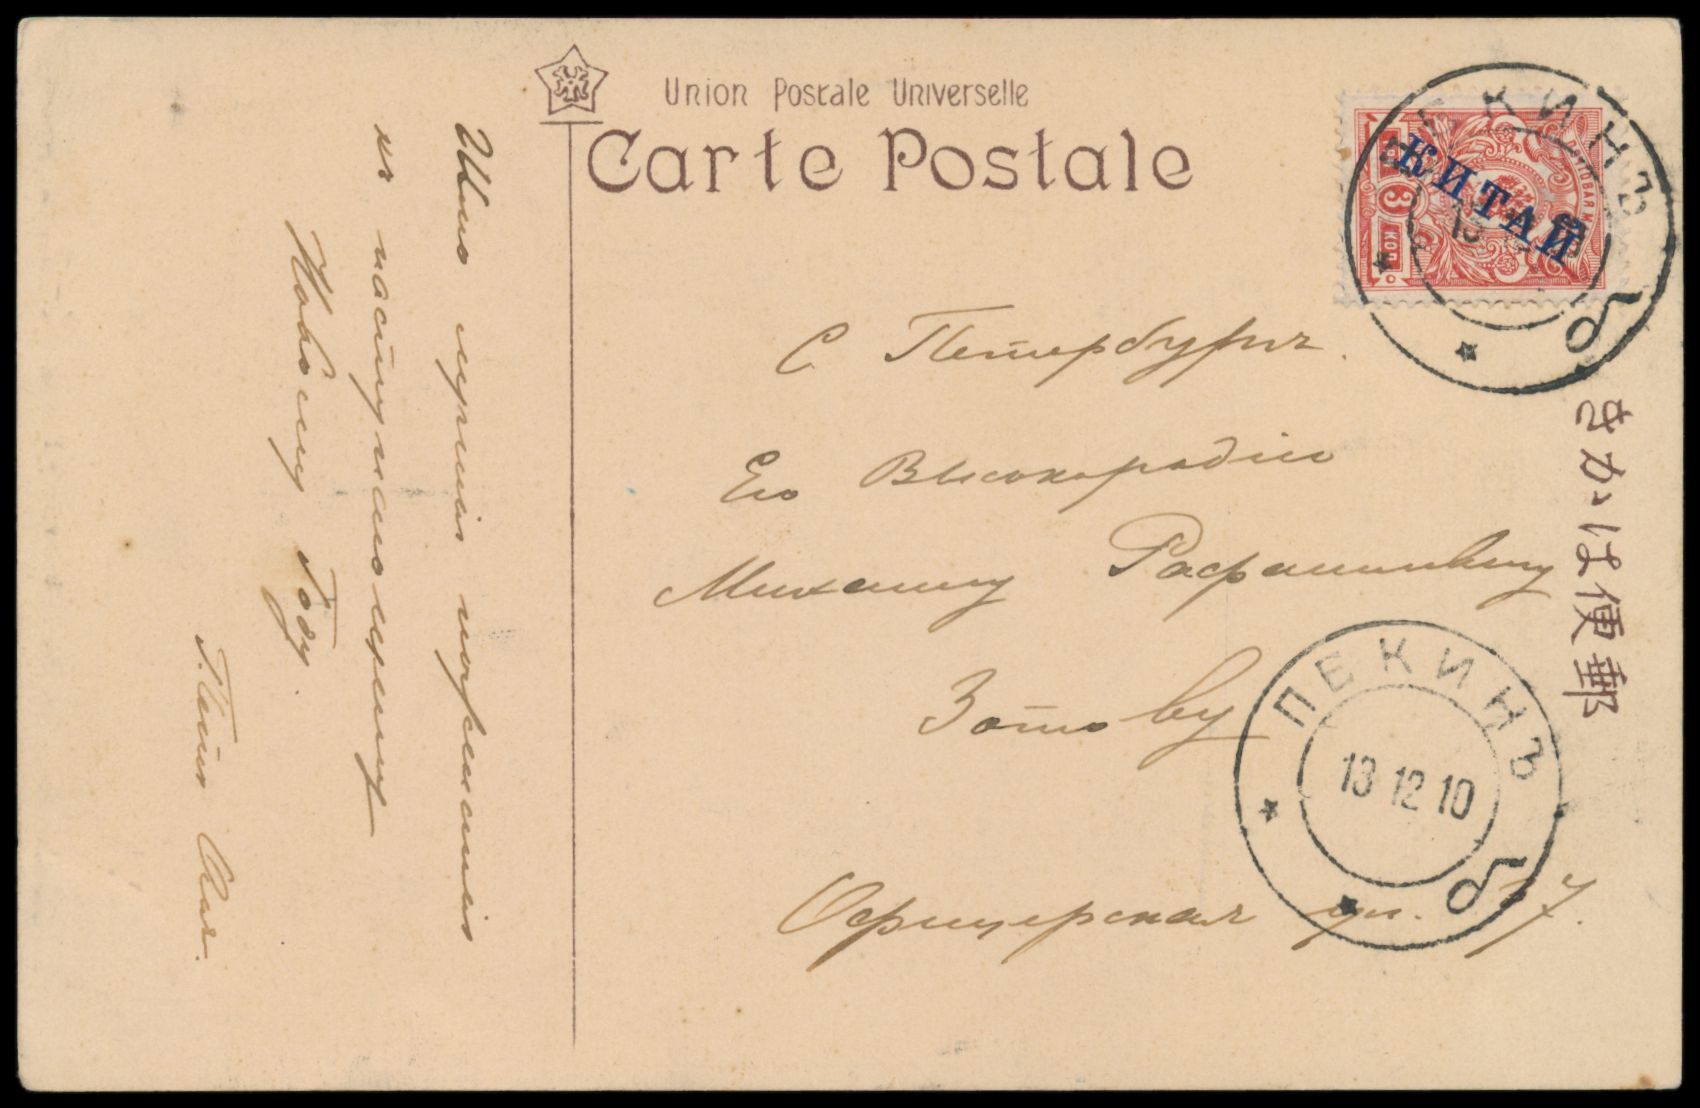 Union Postale Universelle
Carte Postale
КИТАЙ
3
КОП
ПЕКИНЪ
б
きかは便郵
С Петербургъ.
Его Высокородію
Михаилу Рафаиловичу
Зотову
Офицерская ул. 37.
ПЕКИНЪ
13 12 10
б
Шлю
къ наступающему
Новому Году.